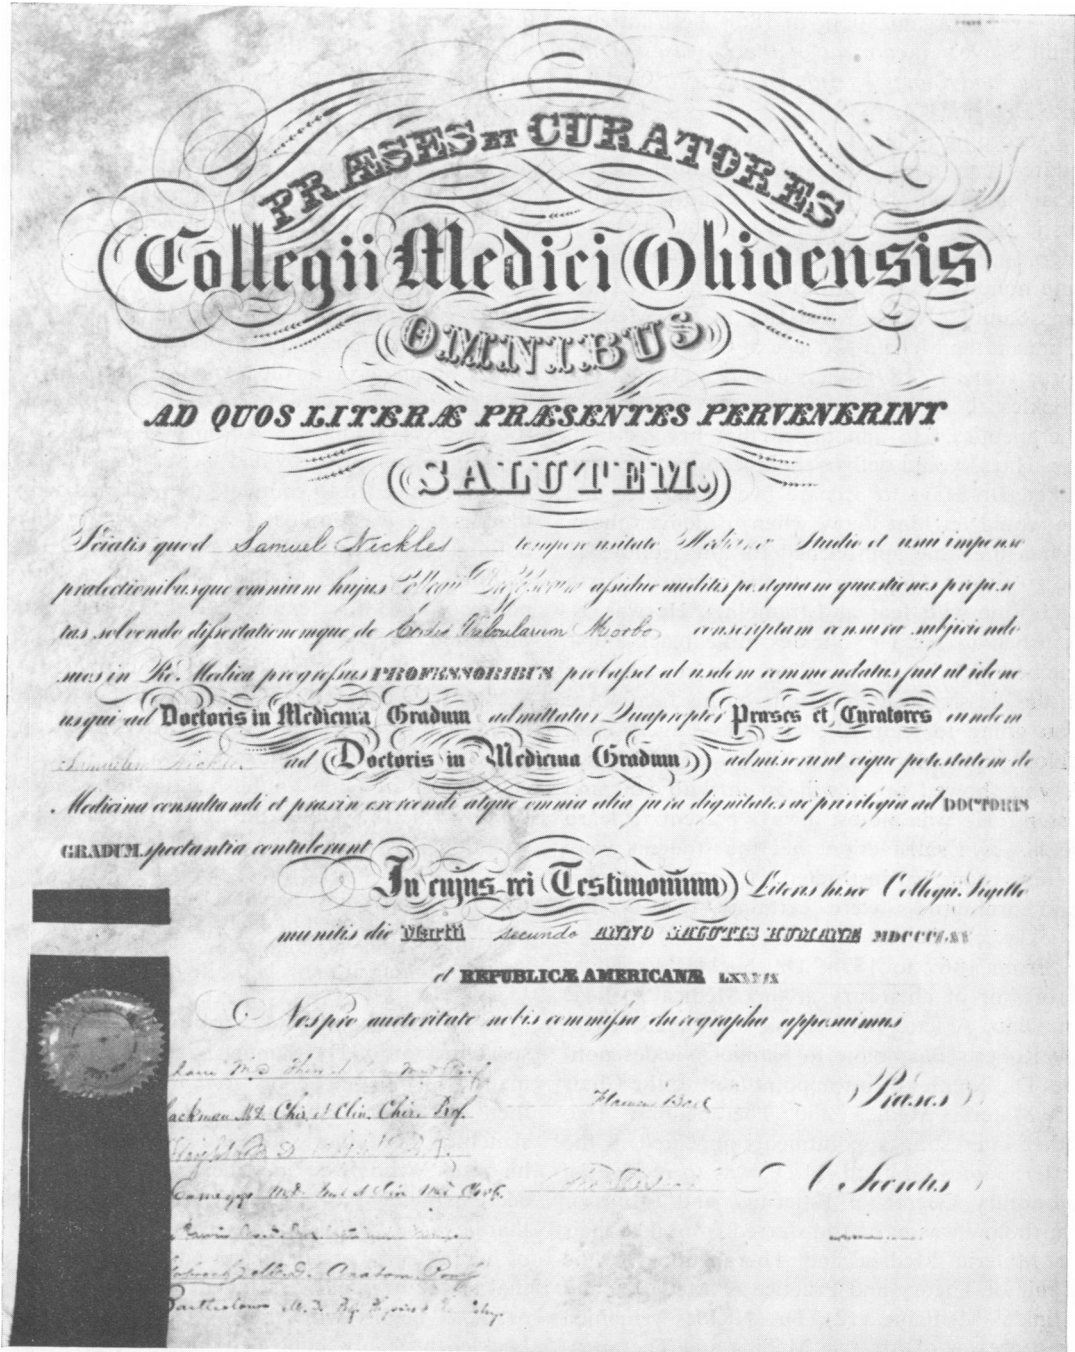 PRÆSES ET CURATORES
Collegii Medici Ohioensis
OMNIBUS
AD QUOS LITERÆ PRÆSENTES PERVENERINT
SALUTEM.
Sciatis quod Samuel Nickles tempore usitato Medicinæ Studio et usui impenso
prælectionibusque omnium hujus Collegii Professorum assidue auditis postquam quæstiones proposi
tas solvendo dissertationemque de Cordis Valvularum Morbo conscriptam censuræ subjiciendo
suos in Re Medica progressus PROFESSORIBUS probasset ab iisdem commendatus fuit ut idone
us qui ad Doctoris in Medicina Gradum admittatur Quapropter Præses et Curatores eundem
Samuelem Nickles ad Doctoris in Medicina Gradum admiserunt eique potestatem de
Medicina consultandi et praxin exercendi atque omnia alia jura dignitates ac privilegia ad DOCTORIS
GRADUM spectantia contulerunt
In cujus rei Testimonium Literis hisce Collegii Sigillo
munitis die Martii secundo ANNO SALUTIS HUMANÆ MDCCCLXV
et REPUBLICÆ AMERICANÆ LXXXIX
Nos pro auctoritate nobis commissa chirographa apposuimus
M.D.
ackman M.D. Chir. et Clin. Chir. Prof.
Flamen Ball Præses
M.D.
Comegys M.D. et Clin. Med. Prof.
M.D. Anatom. Prof.
Bartholow M.D.